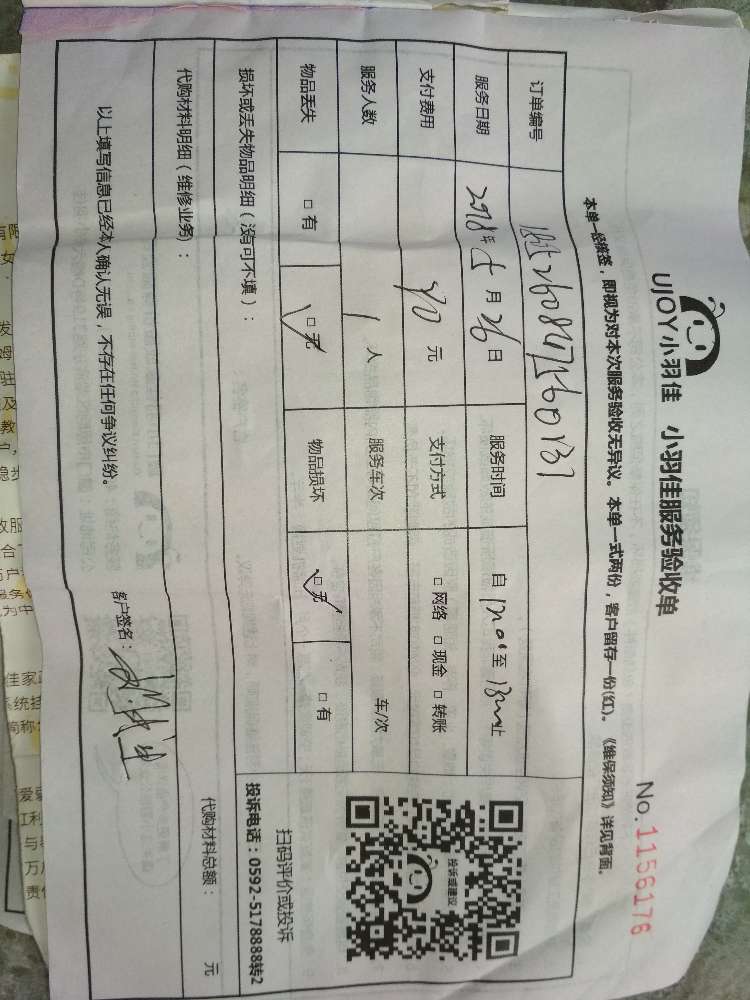 UJOY小羽佳 小羽佳服务验收单
No.1156176
本单一经接签，即视为对本次服务验收无异议。本单一式两份，客户留存一份(红)。《维保须知》详见背面。
订单编号
服务日期 2018年5月26日 服务时间 自 至 止
支付费用 元 支付方式 □ 网络 □ 现金 □ 转账
服务人数 1 人 服务车次 车/次
物品丢失 □ 有 □ 无 物品损坏 □ 无 □ 有
损坏或丢失物品明细（没有可不填）：
投诉或建议
扫码评价或投诉
投诉电话：0592-5178888转2
代购材料明细（维修业务)： 代购材料总额： 元
以上填写信息已经本人确认无误，不存在任何争议纠纷。 客户签名：